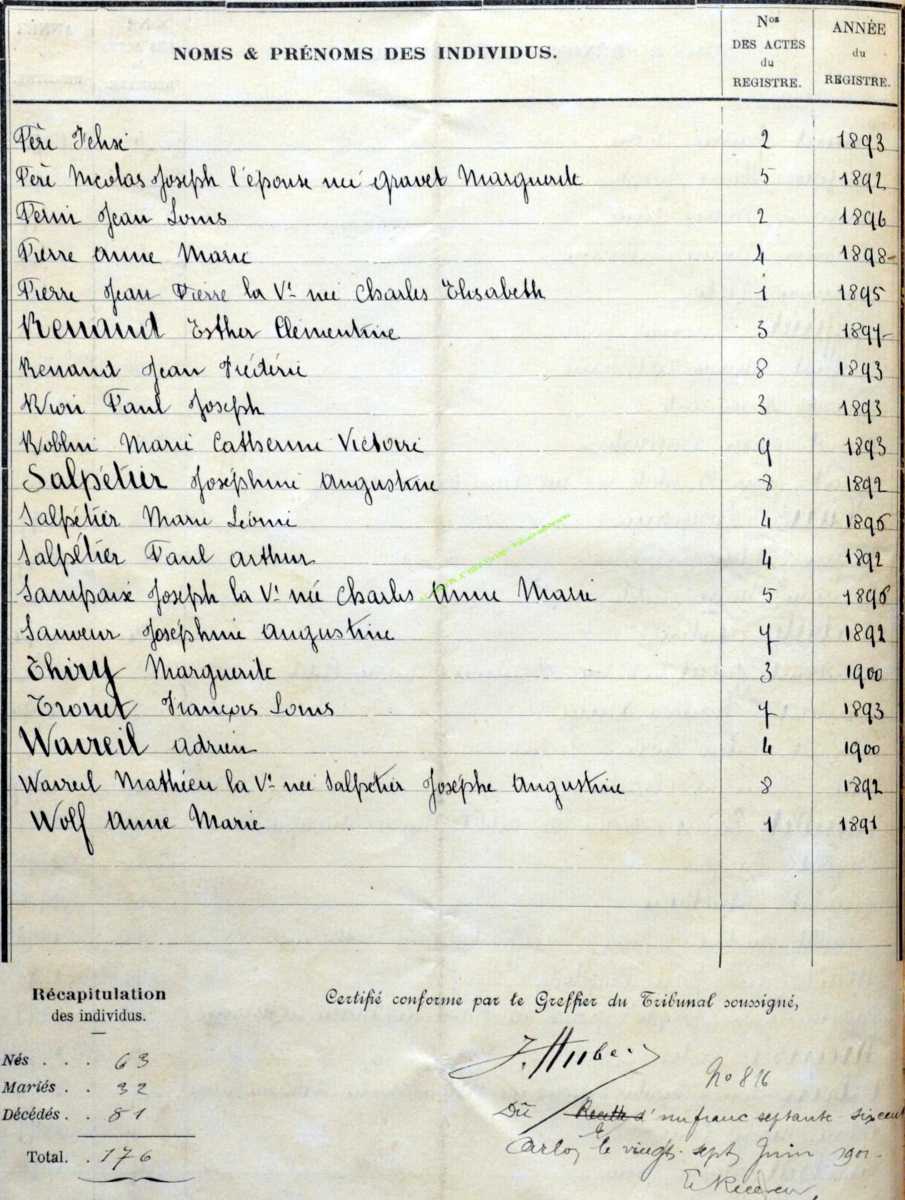 NOMS & PRÉNOMS DES INDIVIDUS.
Nos DES ACTES du REGISTRE.
ANNÉE du REGISTRE.
Père Félix 2 1893
Père Nicolas Joseph l'épouse née Gravet Marguerite 5 1892
Perni Jean Louis 2 1896
Pierre Anne Marie 4 1898
Pierre Jean Pierre la Ve née Charles Elisabeth 1 1895
Renaud Esther Clémentine 3 1897
Renaud Jean Frédéric 8 1893
Paul Joseph 3 1893
Roblin Marie Catherine Victoire 9 1893
Salpétier Joséphine Augustine 8 1892
Salpétier Marie Léonie 4 1896
Salpétier Paul Arthur 4 1892
Sampaix Joseph la Ve née Charles Anne Marie 5 1896
Sauveur Joséphine Augustine 7 1892
Thiry Marguerite 3 1900
François Louis 7 1893
Wavreil Adrien 4 1900
Wavreil Mathieu la Ve née Salpétier Josephe Augustine 8 1892
Wolf Anne Marie 1 1891
Récapitulation
des individus.
Nés . . . 63
Mariés . . 32
Décédés . . 81
Total. . 176
Certifié conforme par le Greffier du Tribunal soussigné,
No 816
Dû d'un franc septante six cent
Arlon, le vingt sept Juin 1901.
Le Receveur,